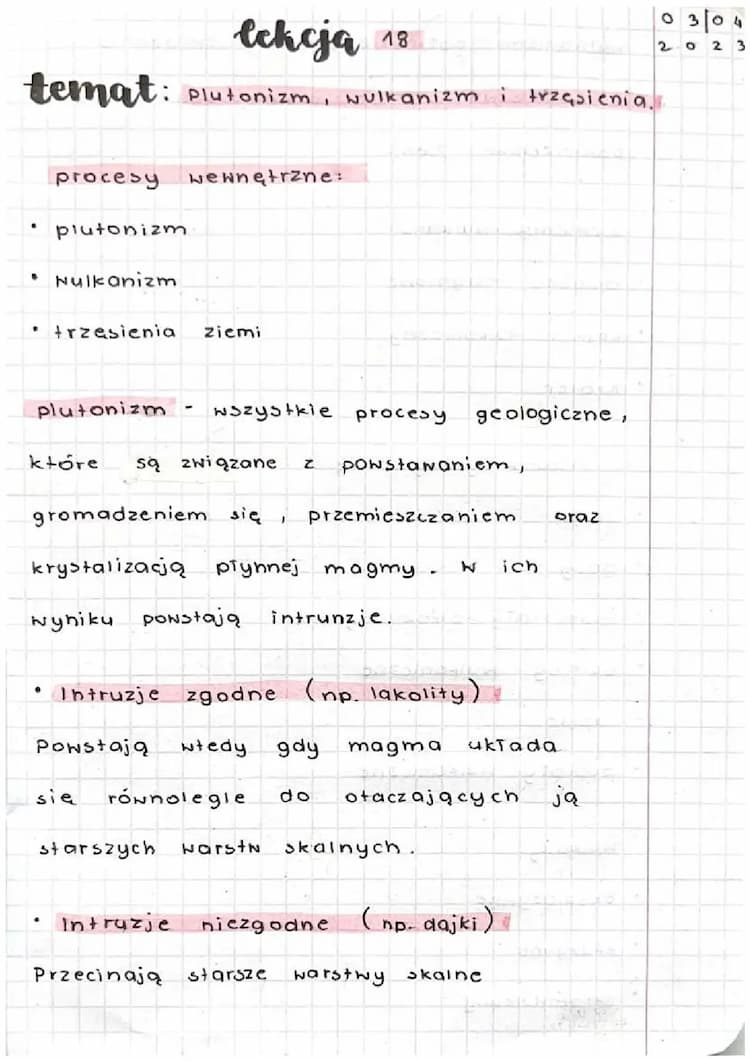 lekcja 18
03 04
2023
temat: Plutonizm, wulkanizm i trzęsienia.
procesy wewnętrzne:
• plutonizm
• wulkanizm
• trzęsienia ziemi
plutonizm - wszystkie procesy geologiczne,
które są związane z powstawaniem,
gromadzeniem się, przemieszczaniem oraz
krystalizacją płynnej magmy. W ich
wyniku powstają intrunzje.
• Intruzje zgodne (np. lakolity)
Powstają wtedy gdy magma układa
się równolegle do otaczających ją
starszych warstw skalnych.
• Intruzje niezgodne (np. dajki)
Przecinają starsze warstwy skalne